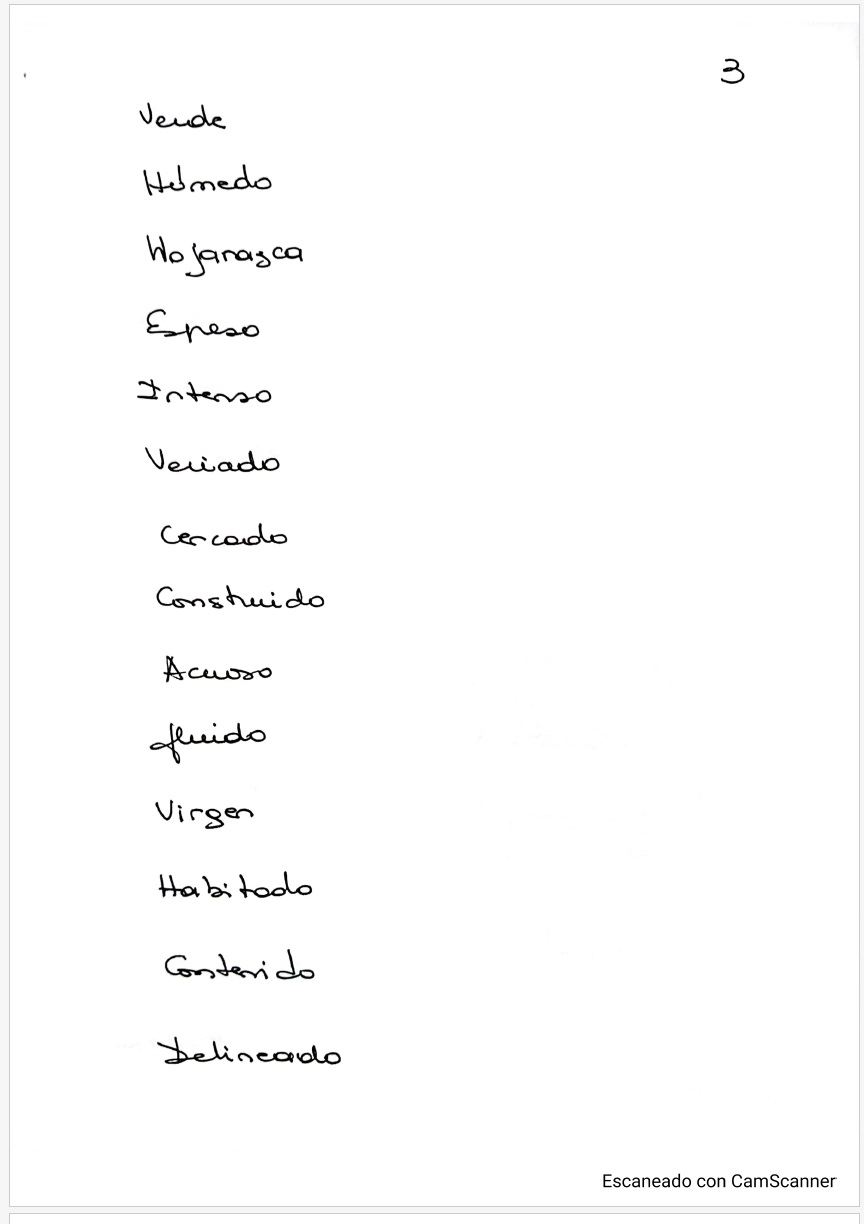 3
Verde
Húmedo
Hojarasca
Espeso
Intenso
Variado
Cercado
Construido
Acuoso
fluido
Virgen
Habitado
Contenido
Delineado
Escaneado con CamScanner